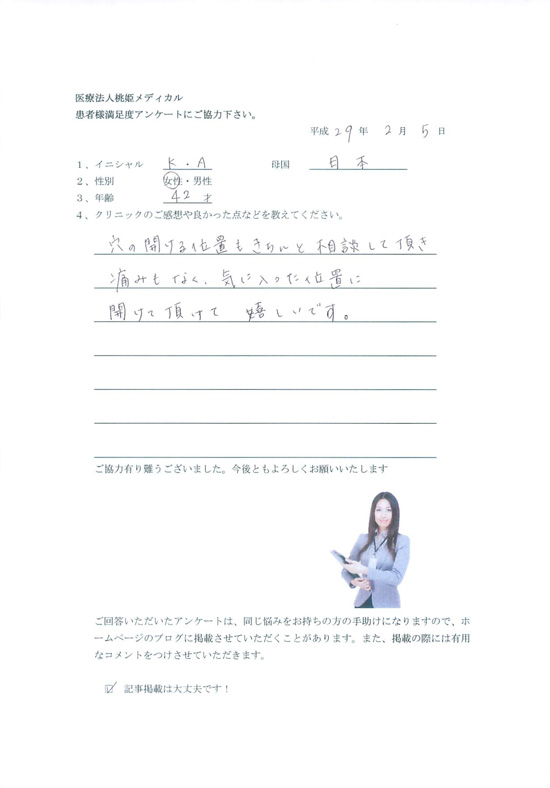 医療法人桃姫メディカル
患者様満足度アンケートにご協力下さい。
平成 29 年 2 月 5 日
1、イニシャル K・A 母国 日本
2、性別 女性・男性
3、年齢 42 才
4、クリニックのご感想や良かった点などを教えてください。
穴の開ける位置もきちんと相談して頂き
痛みもなく、気に入った位置に
開けて頂けて 嬉しいです。
ご協力有り難うございました。今後ともよろしくお願いいたします
ご回答いただいたアンケートは、同じ悩みをお持ちの方の手助けになりますので、ホ
ームページのブログに掲載させていただくことがあります。また、掲載の際には有用
なコメントをつけさせていただきます。
☑ 記事掲載は大丈夫です！